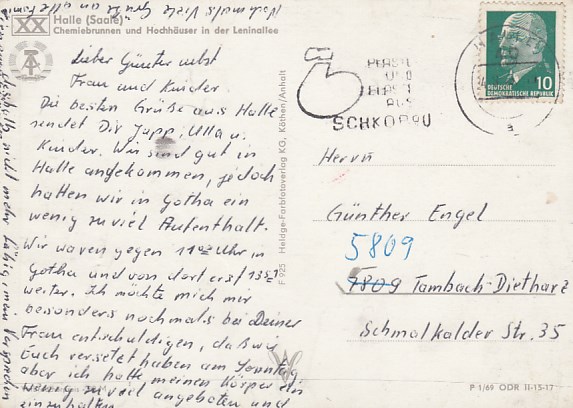 Nochmals Viele Grüße an alle
XX Halle (Saale)
Chemiebrunnen und Hochhäuser in der Leninallee
Lieber Günter nebst
Frau und Kinder
Die besten Grüße aus Halle
sendet Dir Jupp, Ulla u.
Kinder. Wir sind gut in
Halle angekommen, jedoch
hatten wir in Gotha ein
wenig zu viel Aufenthalt.
Wir waren gegen 11 Uhr in
Gotha und von dort erst 13
weiter. Ich möchte mich mir
besonders nochmals bei Deiner
Frau entschuldigen, daß wir
Euch versetzt haben am Sonntag
aber ich hatte meinen Körper ein
wenig zu viel angeboten und
nicht mehr fähig, mein Versprechen
einzuhalten
F 925 Heldge-Farbfotoverlag KG, Köthen/Anhalt
PLASTE
UND
ELASTE
AUS
SCHKOPAU
DEUTSCHE
DEMOKRATISCHE REPUBLIK
10
Herrn
Günther Engel
5809
7809 Tambach-Dietharz
Schmalkalder Str. 35
P 1/69 ODR II-15-17